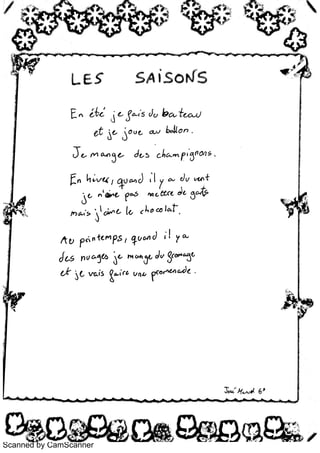 LES SAISONS
En été je fais du bateau
et je joue au ballon.
Je mange des champignons.
En hiver, quand il y a du vent
je n'aime pas mettre de gants
mais j'aime le chocolat.
Au printemps, quand il y a
des nuages je mange du fromage
et je vais faire une promenade.
6º
Scanned by CamScanner